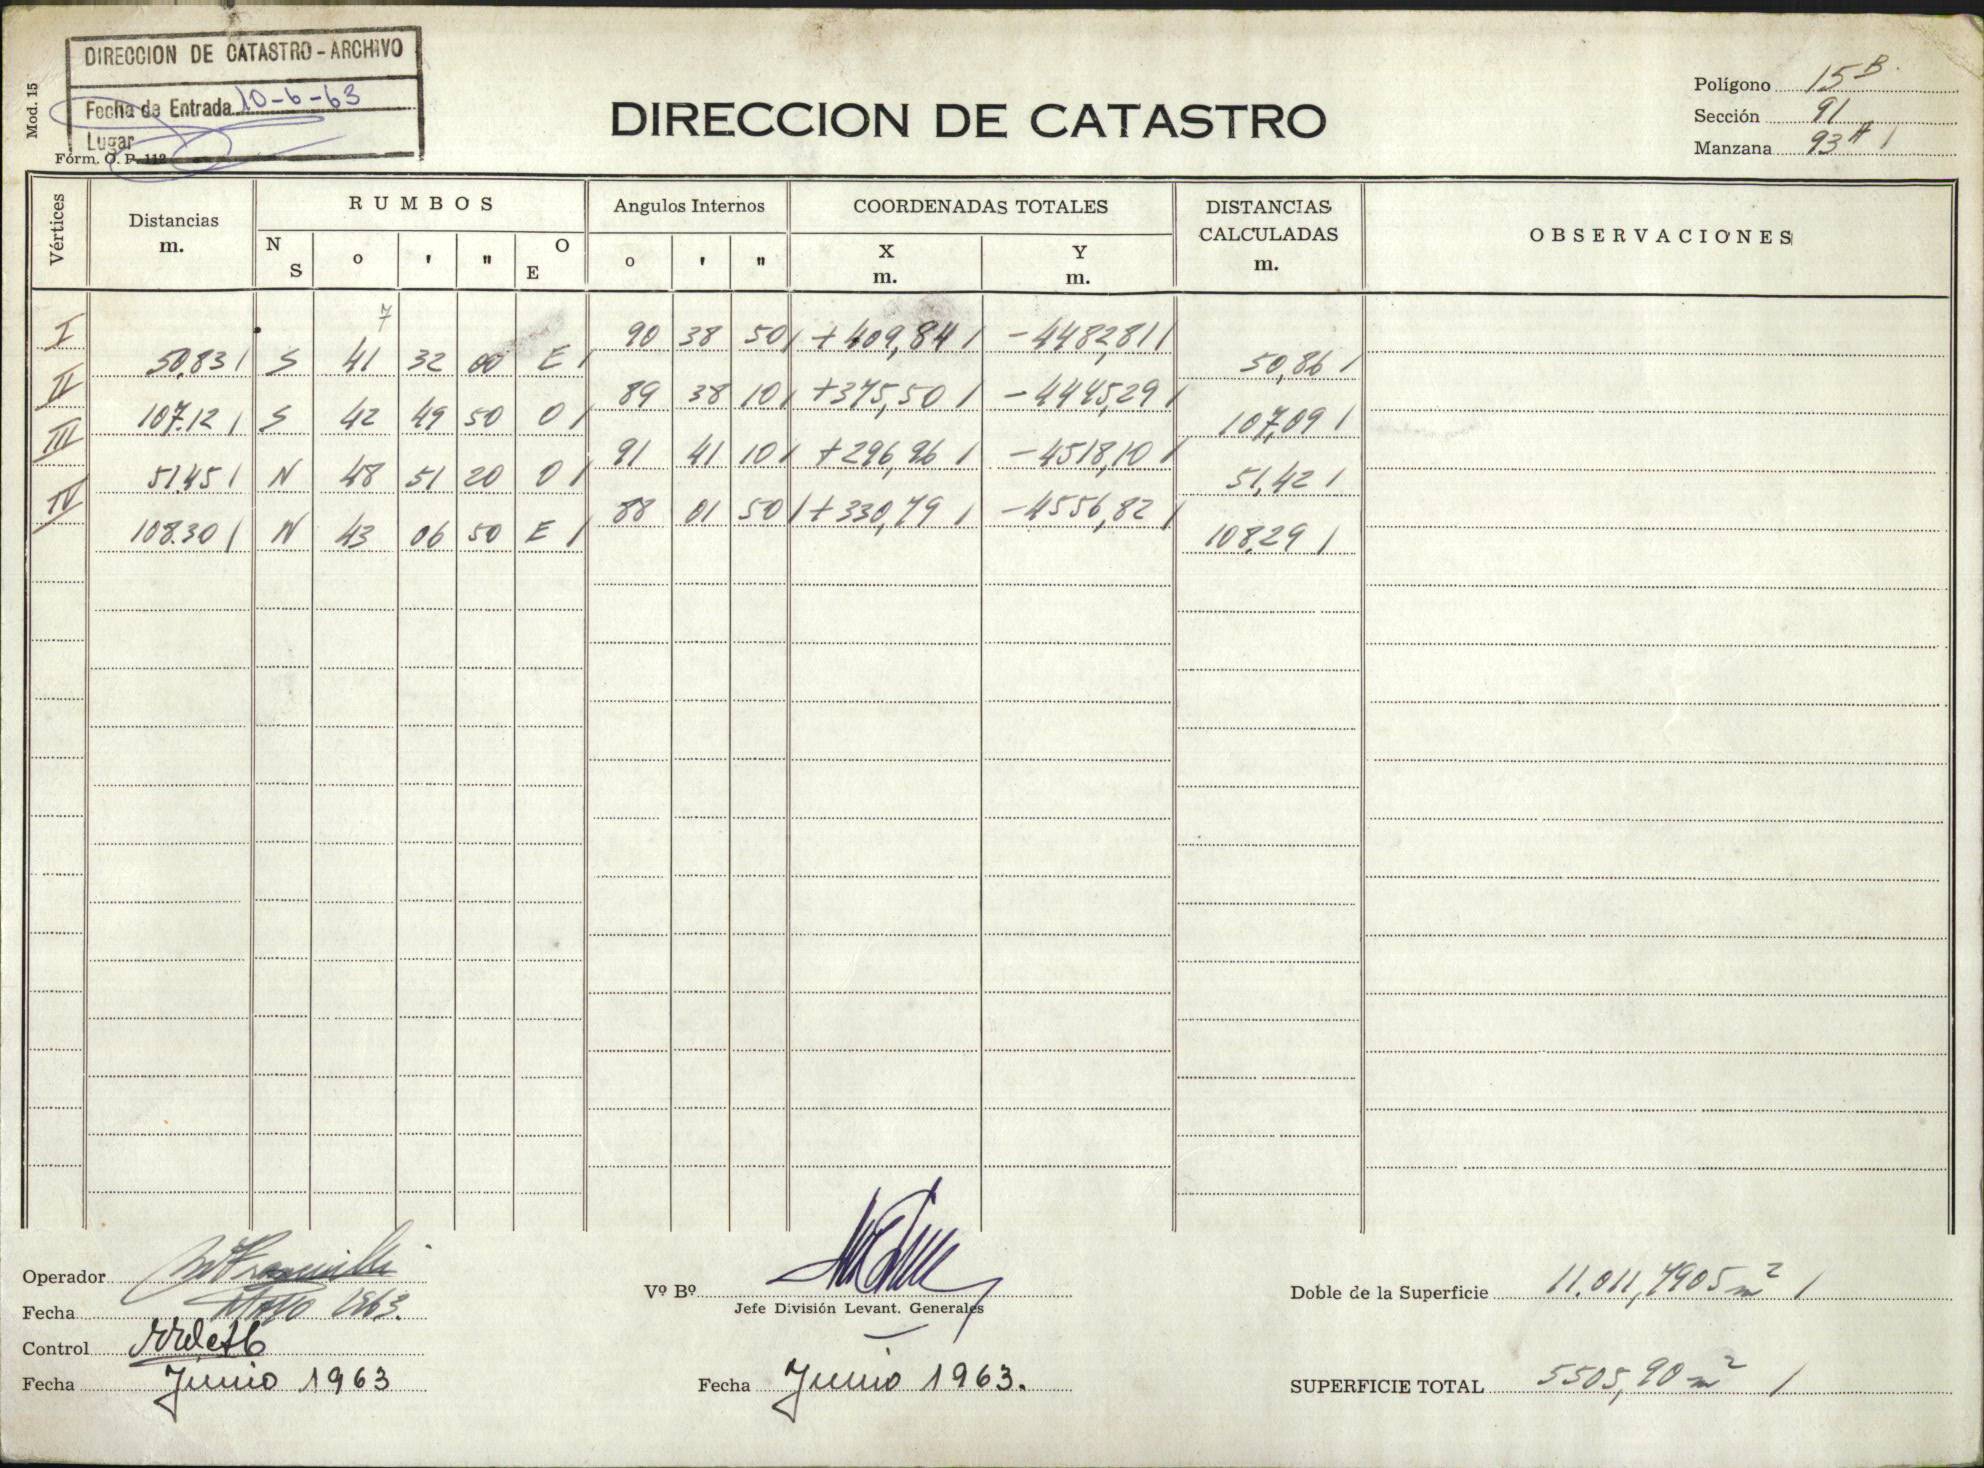 DIRECCION DE CATASTRO - ARCHIVO
Fecha de Entrada 10-6-63
Lugar
Mod. 15
Fórm. O. P. 112
DIRECCION DE CATASTRO
Polígono 15B
Sección 91
Manzana 93A
Vértices
Distancias
m.
RUMBOS
N
S
o
'
"
O
E
Angulos Internos
o
'
"
COORDENADAS TOTALES
X
m.
Y
m.
DISTANCIAS
CALCULADAS
m.
OBSERVACIONES
7
I 90 38 50 +409,84 -4482,81
50,83 S 41 32 00 E 50,86
II 89 38 10 +375,50 -4445,29
107.12 S 42 49 50 O 107,09
III 91 41 10 +296,96 -4518,10
51.45 N 48 51 20 O 51,42
IV 88 01 50 +330,79 -4556,82
108.30 N 43 06 50 E 108,29
Operador
Fecha Mayo 1963.
Control
Fecha Junio 1963
Vº Bº
Jefe División Levant. Generales
Fecha Junio 1963.
Doble de la Superficie 11.011,7905 m²
SUPERFICIE TOTAL 5505,90 m²